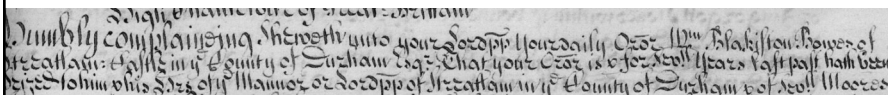 Humbly Complaineing Sheweth unto your Lordpp your daily Orõr Wm Blakiston Bowes of
Streatlam Castle in ye County of Durham Esqr That your Orõr is & for sevll years last past hath been
seized to him & his heirs of ye Mannor or Lordpp of Streatlam in ye County of Durham & of sevll Moores